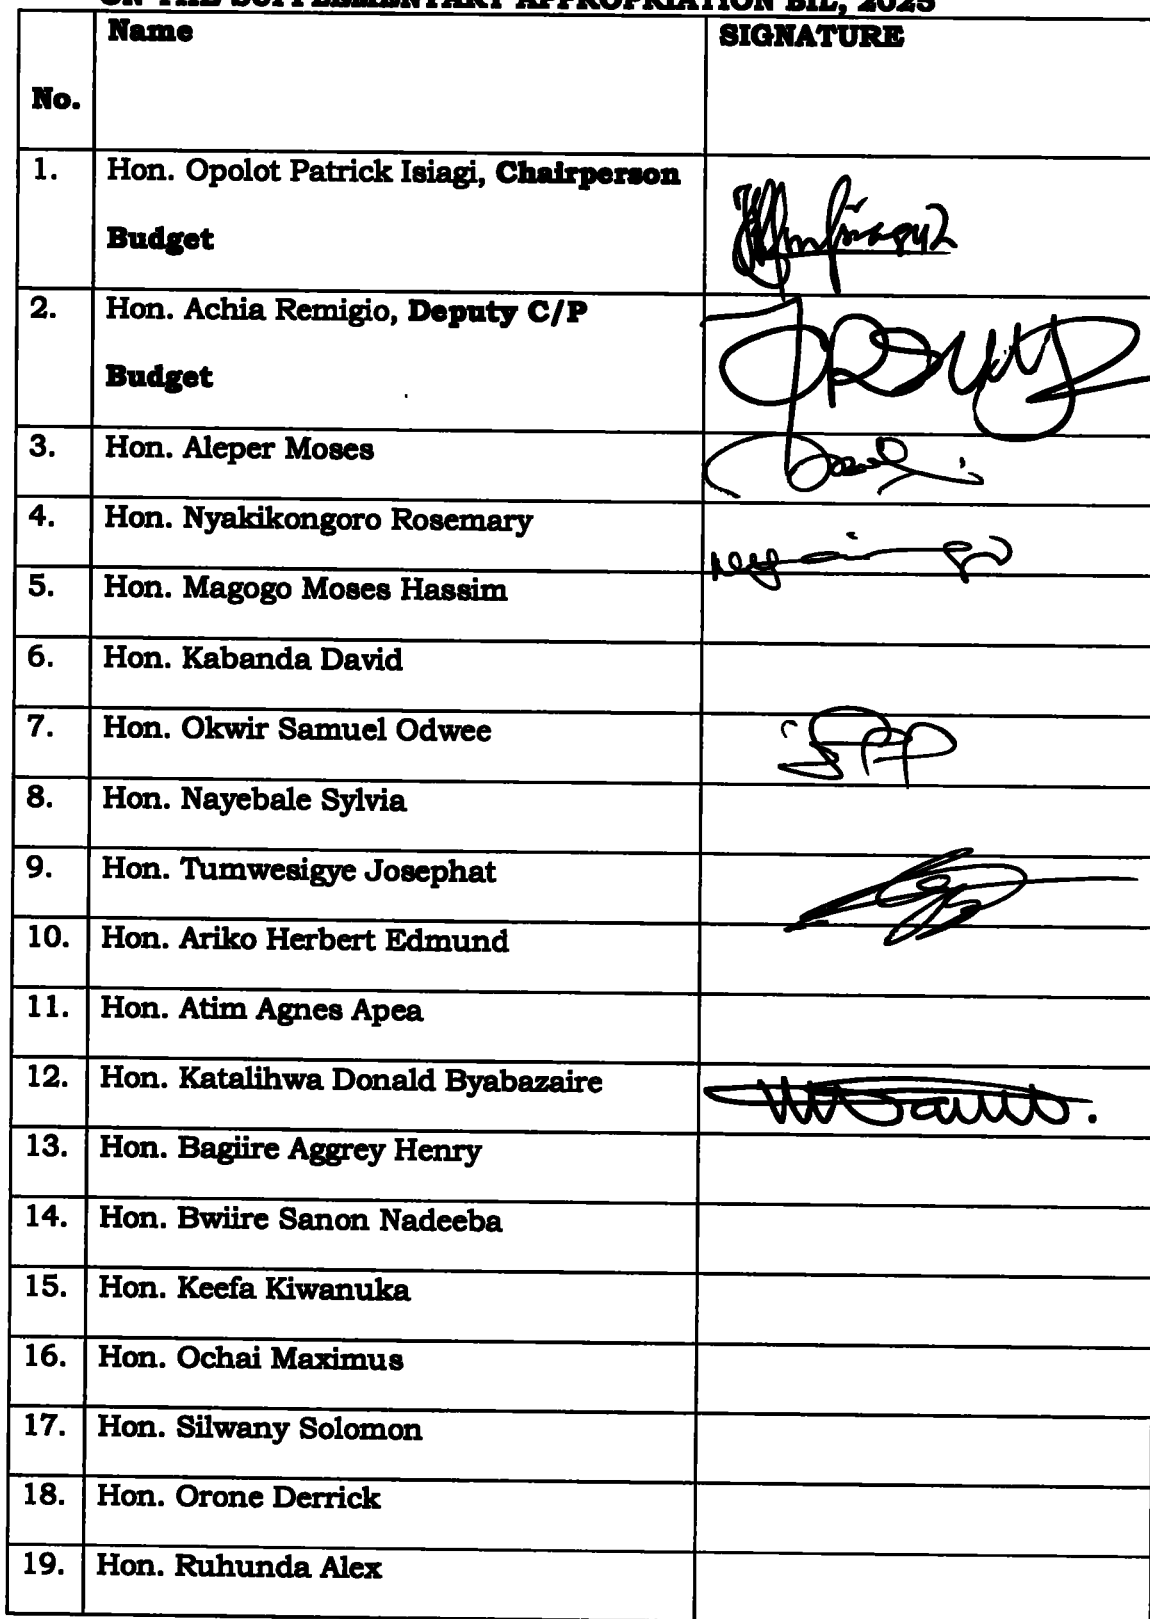 ON THE SUPPLEMENTARY APPROPRIATION BIL, 2025
Name
SIGNATURE
No.
1. Hon. Opolot Patrick Isiagi, Chairperson
Budget
2. Hon. Achia Remigio, Deputy C/P
Budget
3. Hon. Aleper Moses
4. Hon. Nyakikongoro Rosemary
5. Hon. Magogo Moses Hassim
6. Hon. Kabanda David
7. Hon. Okwir Samuel Odwee
8. Hon. Nayebale Sylvia
9. Hon. Tumwesigye Josephat
10. Hon. Ariko Herbert Edmund
11. Hon. Atim Agnes Apea
12. Hon. Katalihwa Donald Byabazaire
13. Hon. Bagiire Aggrey Henry
14. Hon. Bwiire Sanon Nadeeba
15. Hon. Keefa Kiwanuka
16. Hon. Ochai Maximus
17. Hon. Silwany Solomon
18. Hon. Orone Derrick
19. Hon. Ruhunda Alex